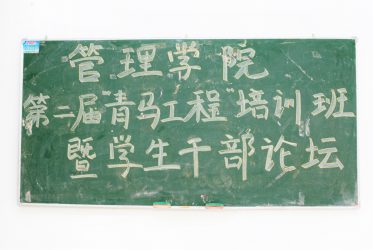 管理学院
第二届"青马工程"培训班
暨学生干部论坛